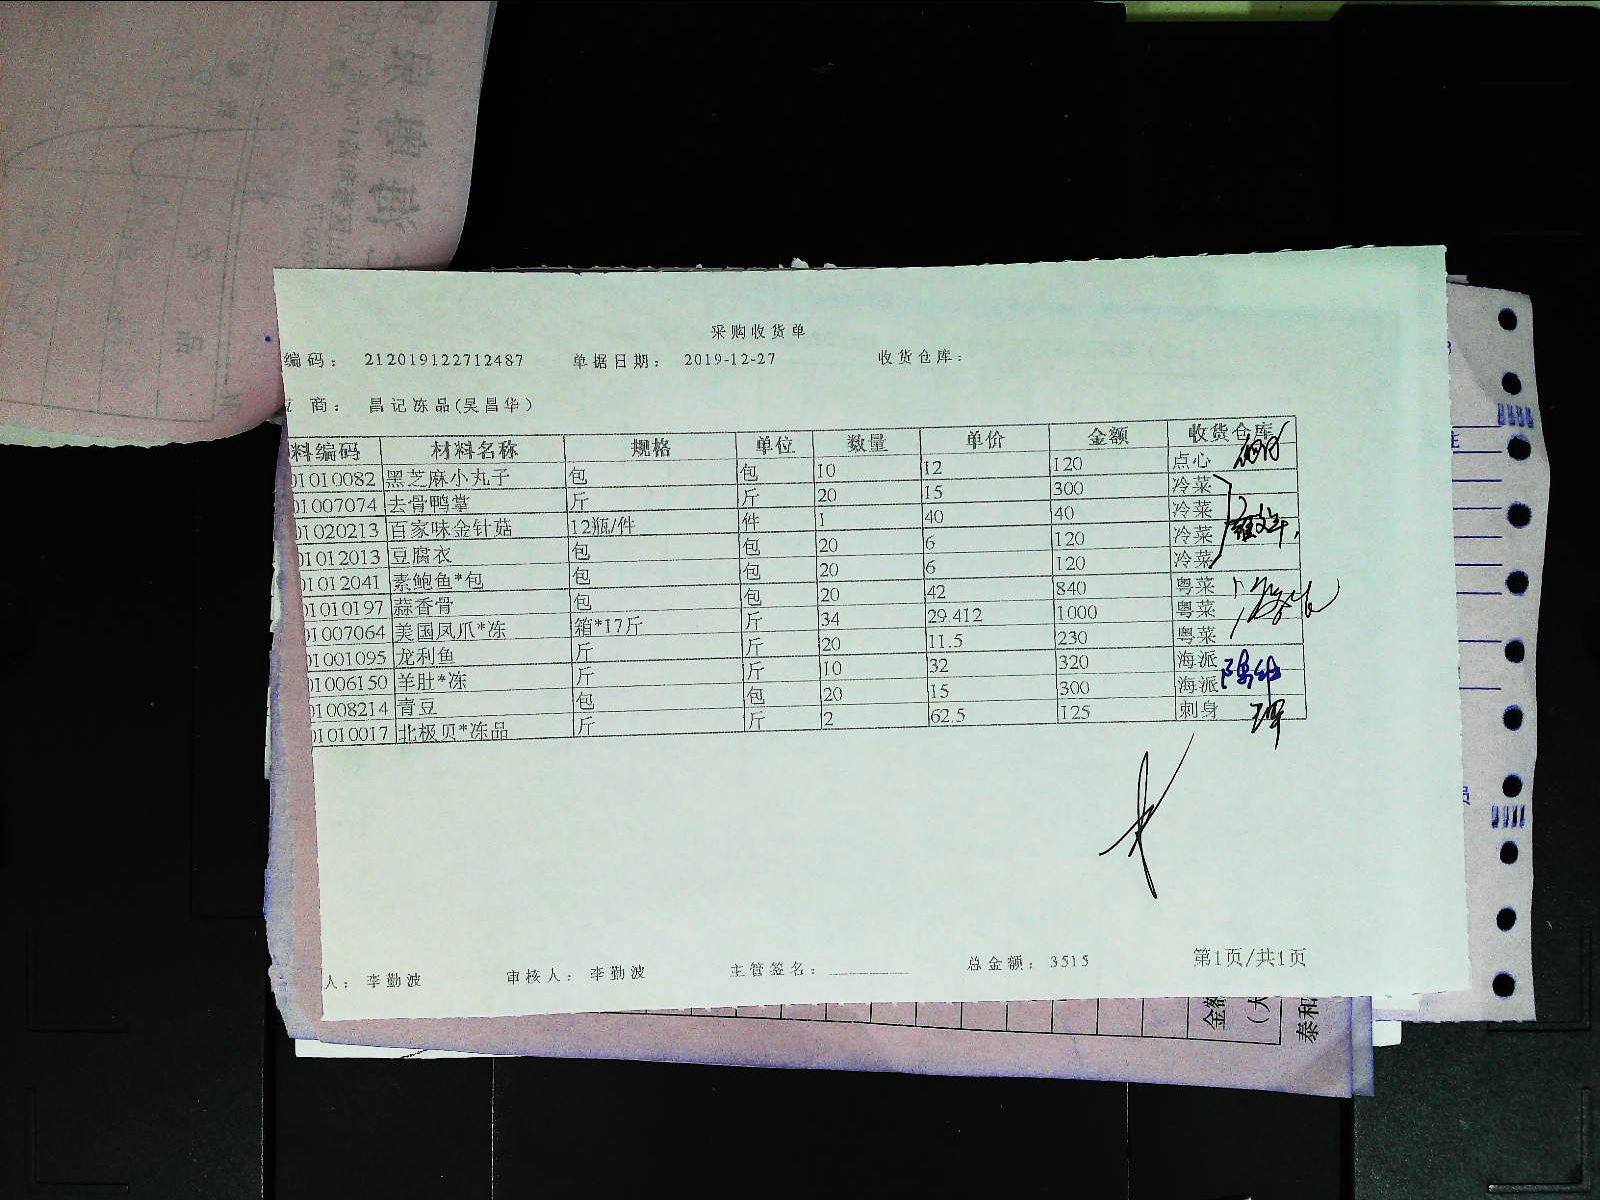 采购收货单
编码： 212019122712487 单据日期： 2019-12-27 收货仓库：
商： 昌记冻品(吴昌华)
料编码 材料名称 规格 单位 数量 单价 金额 收货仓库
01010082 黑芝麻小丸子 包 包 10 12 120 点心
01007074 去骨鸭掌 斤 斤 20 15 300 冷菜
01020213 百家味金针菇 12瓶/件 件 1 40 40 冷菜
01012013 豆腐衣 包 包 20 6 120 冷菜
01012041 素鲍鱼*包 包 包 20 6 120 冷菜
01010197 蒜香骨 包 包 20 42 840 粤菜
01007064 美国凤爪*冻 箱*17斤 斤 34 29.412 1000 粤菜
01001095 龙利鱼 斤 斤 20 11.5 230 粤菜
01006150 羊肚*冻 斤 斤 10 32 320 海派
01008214 青豆 包 包 20 15 300 海派
01010017 北极贝*冻品 斤 斤 2 62.5 125 刺身
人： 李勤波 审核人： 李勤波 主管签名： 总金额： 3515 第1页/共1页